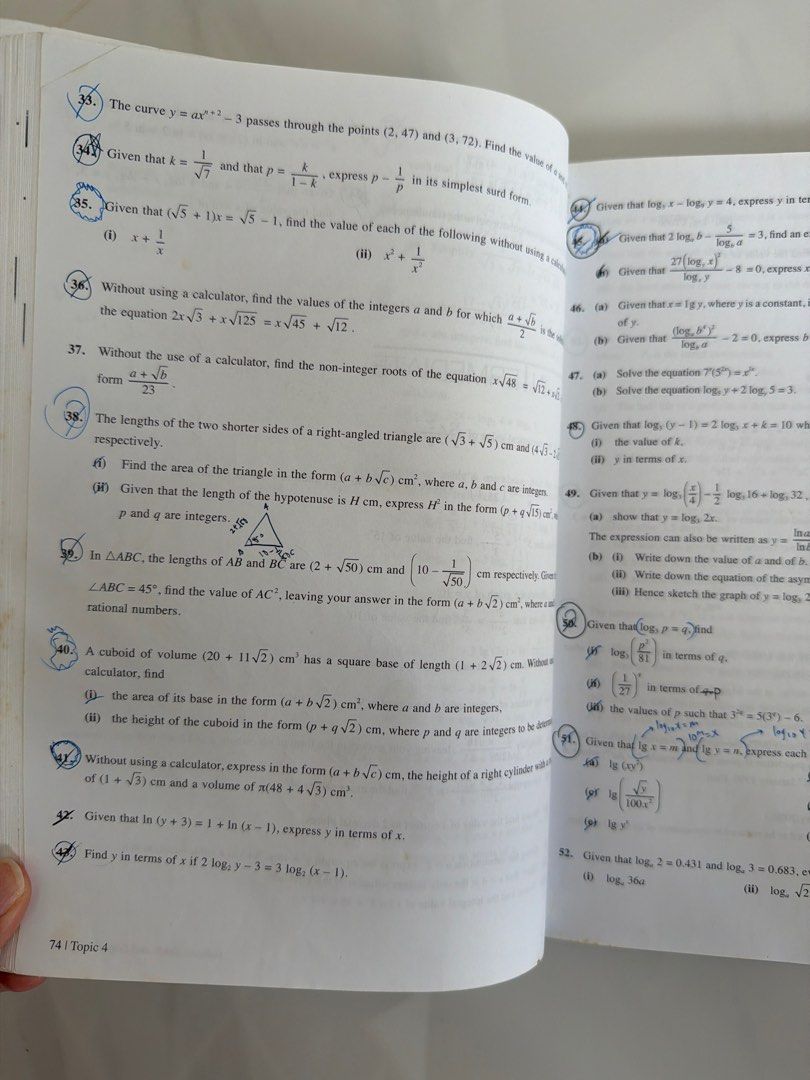 33. The curve y = axⁿ⁺² – 3 passes through the points (2, 47) and (3, 72). Find the value of a
34. Given that k = 1/√7 and that p = k/(1 – k), express p – 1/p in its simplest surd form.
35. Given that (√5 + 1)x = √5 – 1, find the value of each of the following without using a
(i) x + 1/x (ii) x² + 1/x²
36. Without using a calculator, find the values of the integers a and b for which (a + √b)/2 is the
the equation 2x√3 + x√125 = x√45 + √12.
37. Without the use of a calculator, find the non-integer roots of the equation x√48 = √12 +
form (a + √b)/23.
38. The lengths of the two shorter sides of a right-angled triangle are (√3 + √5) cm and (4√3 –
respectively.
(i) Find the area of the triangle in the form (a + b√c) cm², where a, b and c are integers.
(ii) Given that the length of the hypotenuse is H cm, express H² in the form (p + q√15) cm²,
p and q are integers.
A
B
45°
C
39. In △ABC, the lengths of AB and BC are (2 + √50) cm and (10 – 1/√50) cm respectively. Given
∠ABC = 45°, find the value of AC², leaving your answer in the form (a + b√2) cm², where a
rational numbers.
40. A cuboid of volume (20 + 11√2) cm³ has a square base of length (1 + 2√2) cm. Without
calculator, find
(i) the area of its base in the form (a + b√2) cm², where a and b are integers,
(ii) the height of the cuboid in the form (p + q√2) cm, where p and q are integers to be
41. Without using a calculator, express in the form (a + b√c) cm, the height of a right cylinder with a
of (1 + √3) cm and a volume of π(48 + 4√3) cm³.
42. Given that ln (y + 3) = 1 + ln (x – 1), express y in terms of x.
43. Find y in terms of x if 2 log₂ y – 3 = 3 log₂ (x – 1).
74 | Topic 4
44. Given that log₃ x – log₉ y = 4, express y in
Given that 2 logₐ b – 5/(log_b a) = 3, find an
Given that 27(log_y x)²/(logₓ y) – 8 = 0, express x
46. (a) Given that x = lg y, where y is a constant,
of y.
(b) Given that (logₐ b⁴)²/(log_b a) – 2 = 0, express b
47. (a) Solve the equation
(b) Solve the equation log₅ y + 2 log_y 5 = 3.
48. Given that log₃ (y – 1) = 2 log₃ x + k = 10
(i) the value of k,
(ii) y in terms of x.
49. Given that y = log₃(x/4) – 1/2 log₃ 16 + log₃ 32,
(a) show that y = log₃ 2x.
The expression can also be written as y = ln a
(b) (i) Write down the value of a and of b.
(ii) Write down the equation of the
(iii) Hence sketch the graph of y = log₃ 2
50. Given that log₃ p = q, find
(i) log₃(p²/81) in terms of q,
(ii) (1/27)^q in terms of p
(iii) the values of p such that 3²q = 5(3^q) – 6.
log₁₀ x = m
10ᵐ = x
log₁₀ y
51. Given that lg x = m and lg y = n, express each
lg (xy³)
lg(√y/100x²)
52. Given that logₐ 2 = 0.431 and logₐ 3 = 0.683,
(i) logₐ 36a (ii) logₐ √2